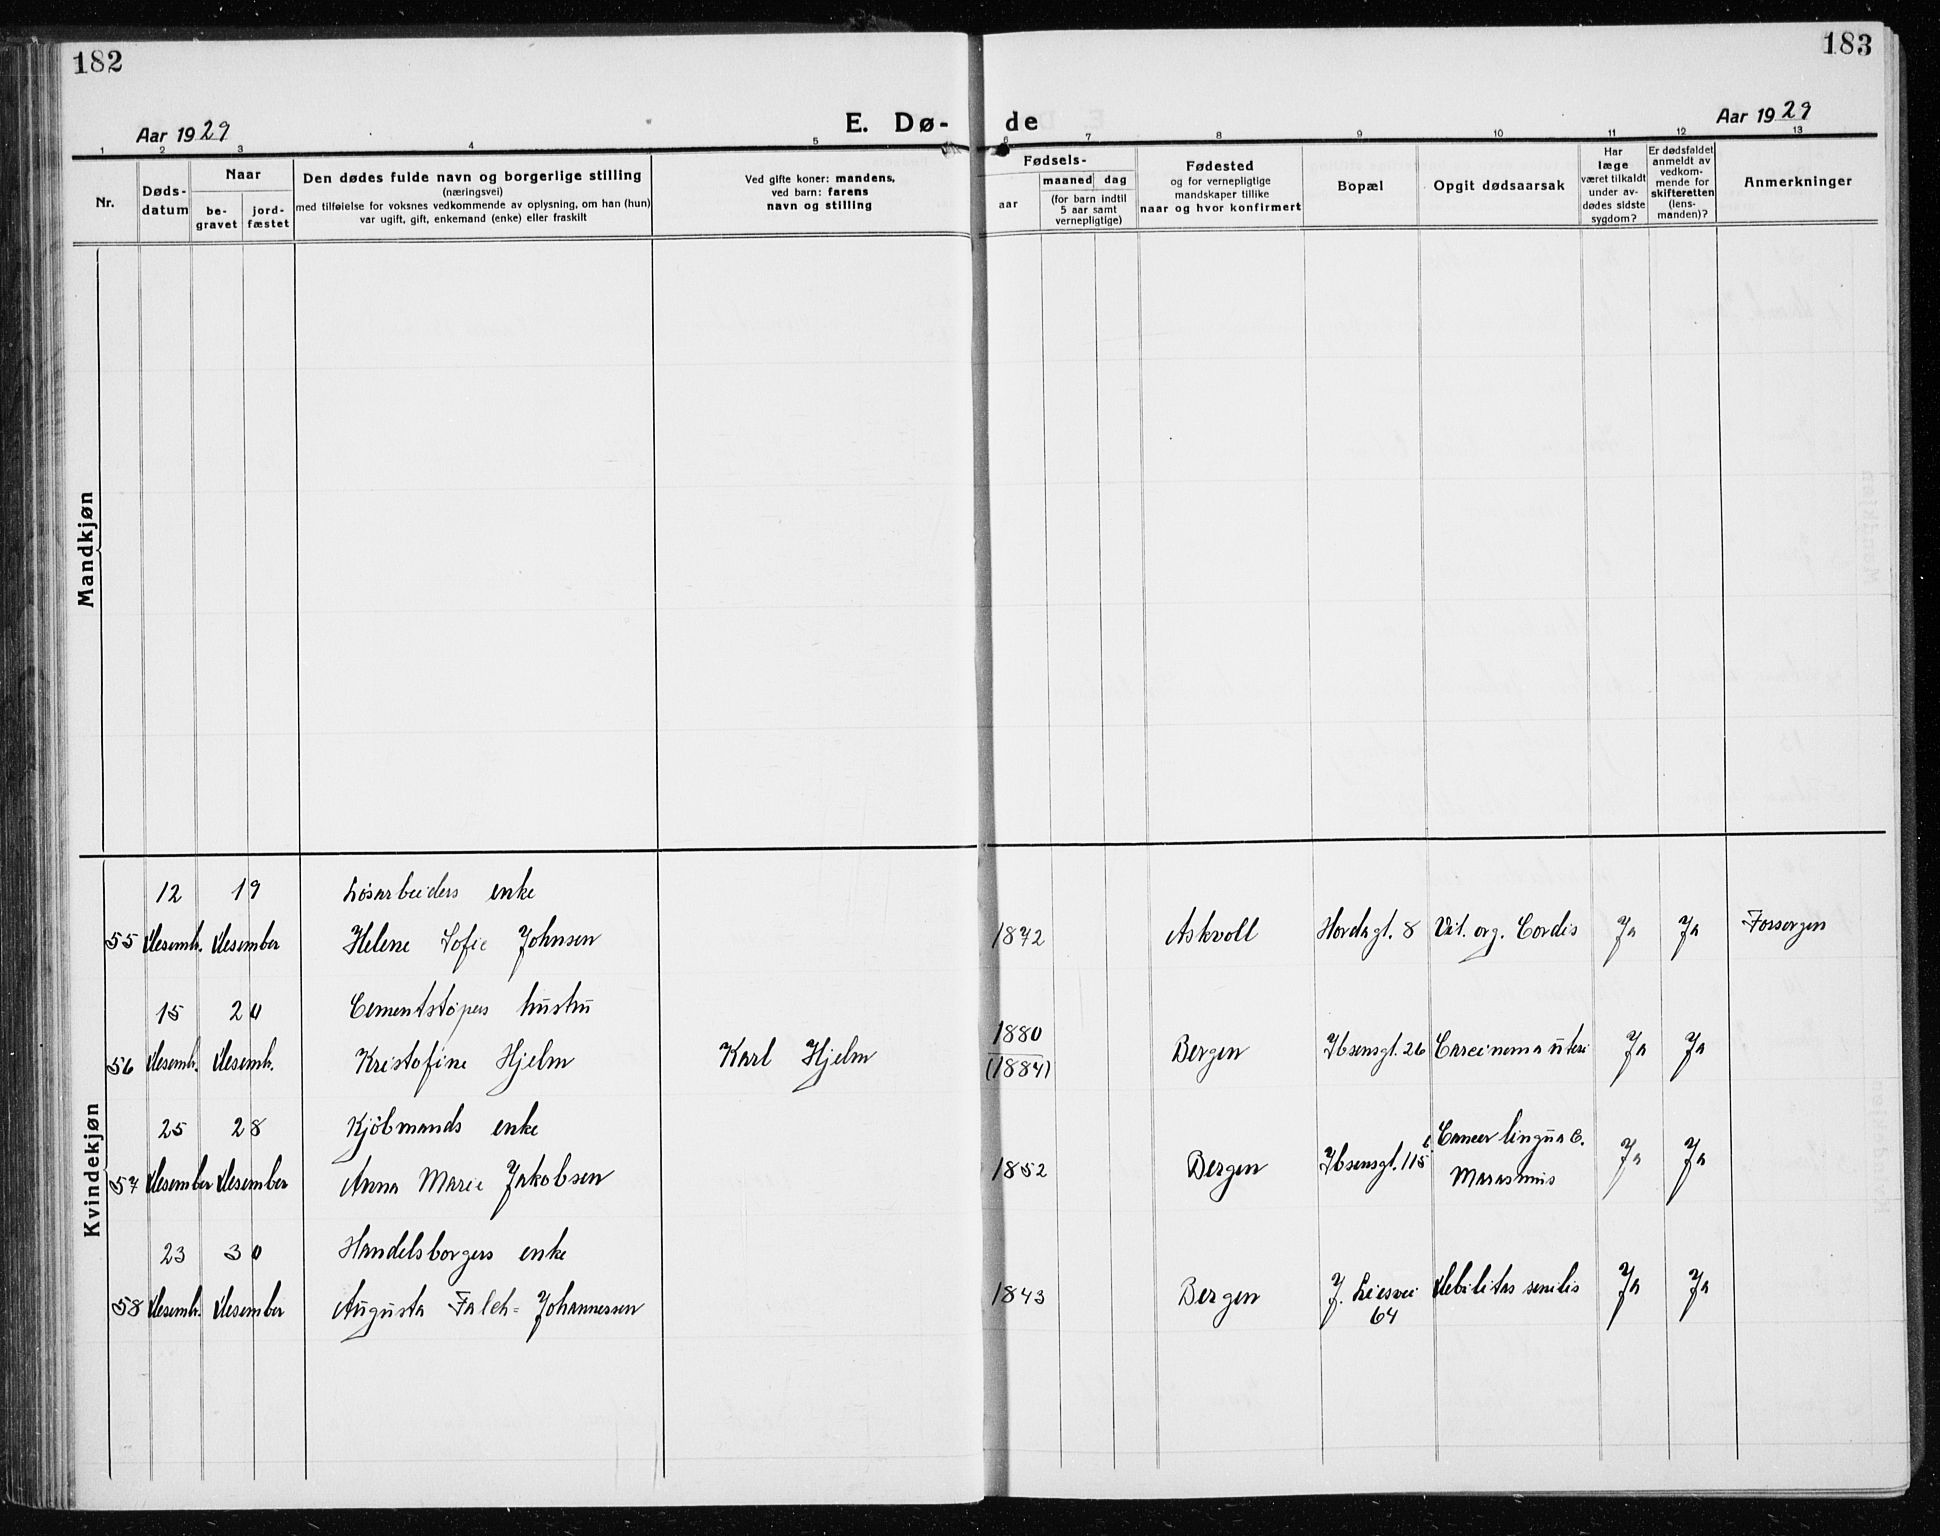 182
183
Aar 1929
E. Dø-
de
Aar 1929
1 2 3 4 5 6 7 8 9 10 11 12 13
Nr.
Døds-
datum
Naar
be-
gravet
jord-
fæstet
Den dødes fulde navn og borgerlige stilling
(næringsvei)
med tilføielse for voksnes vedkommende av oplysning, om han (hun)
var ugift, gift, enkemand (enke) eller fraskilt
Ved gifte koner: mandens,
ved barn: farens
navn og stilling
Fødsels-
aar
maaned dag
(for barn indtil
5 aar samt
vernepligtige)
Fødested
og for vernepligtige
mandskaper tillike
naar og hvor konfirmert
Bopæl
Opgit dødsaarsak
Har
læge
været tilkaldt
under av-
dødes sidste
sygdom?
Er dødsfaldet
anmeldt av
vedkom-
mende for
skifteretten
(lens-
manden)?
Anmerkninger
Mandkjøn
Kvindekjøn
12 19 Løsarbeiders enke
55 Desembr. Desember Helene Sofie Johnsen 1872 Askvoll Hordagt. 8 Vit. org. Cordis Ja Ja Forsorgen
15 20 Cementstøpers hustru
56 Desembr. Desembr. Kristofine Hjelm Karl Hjelm 1880 (1884) Bergen Ibsensgt. 26 Carcinoma uteri Ja Ja
25 28 Kjøbmands enke
57 Desember Desember Anna Marie Jakobsen 1852 Bergen Ibsensgt. 115 Cancer linguæ.
Marasmus Ja Ja
23 30 Handelsborgers enke
58 Desembr. Desember Augusta Falch-Johannessen 1843 Bergen J. Liesvei
64 Debilitas senilis Ja Ja